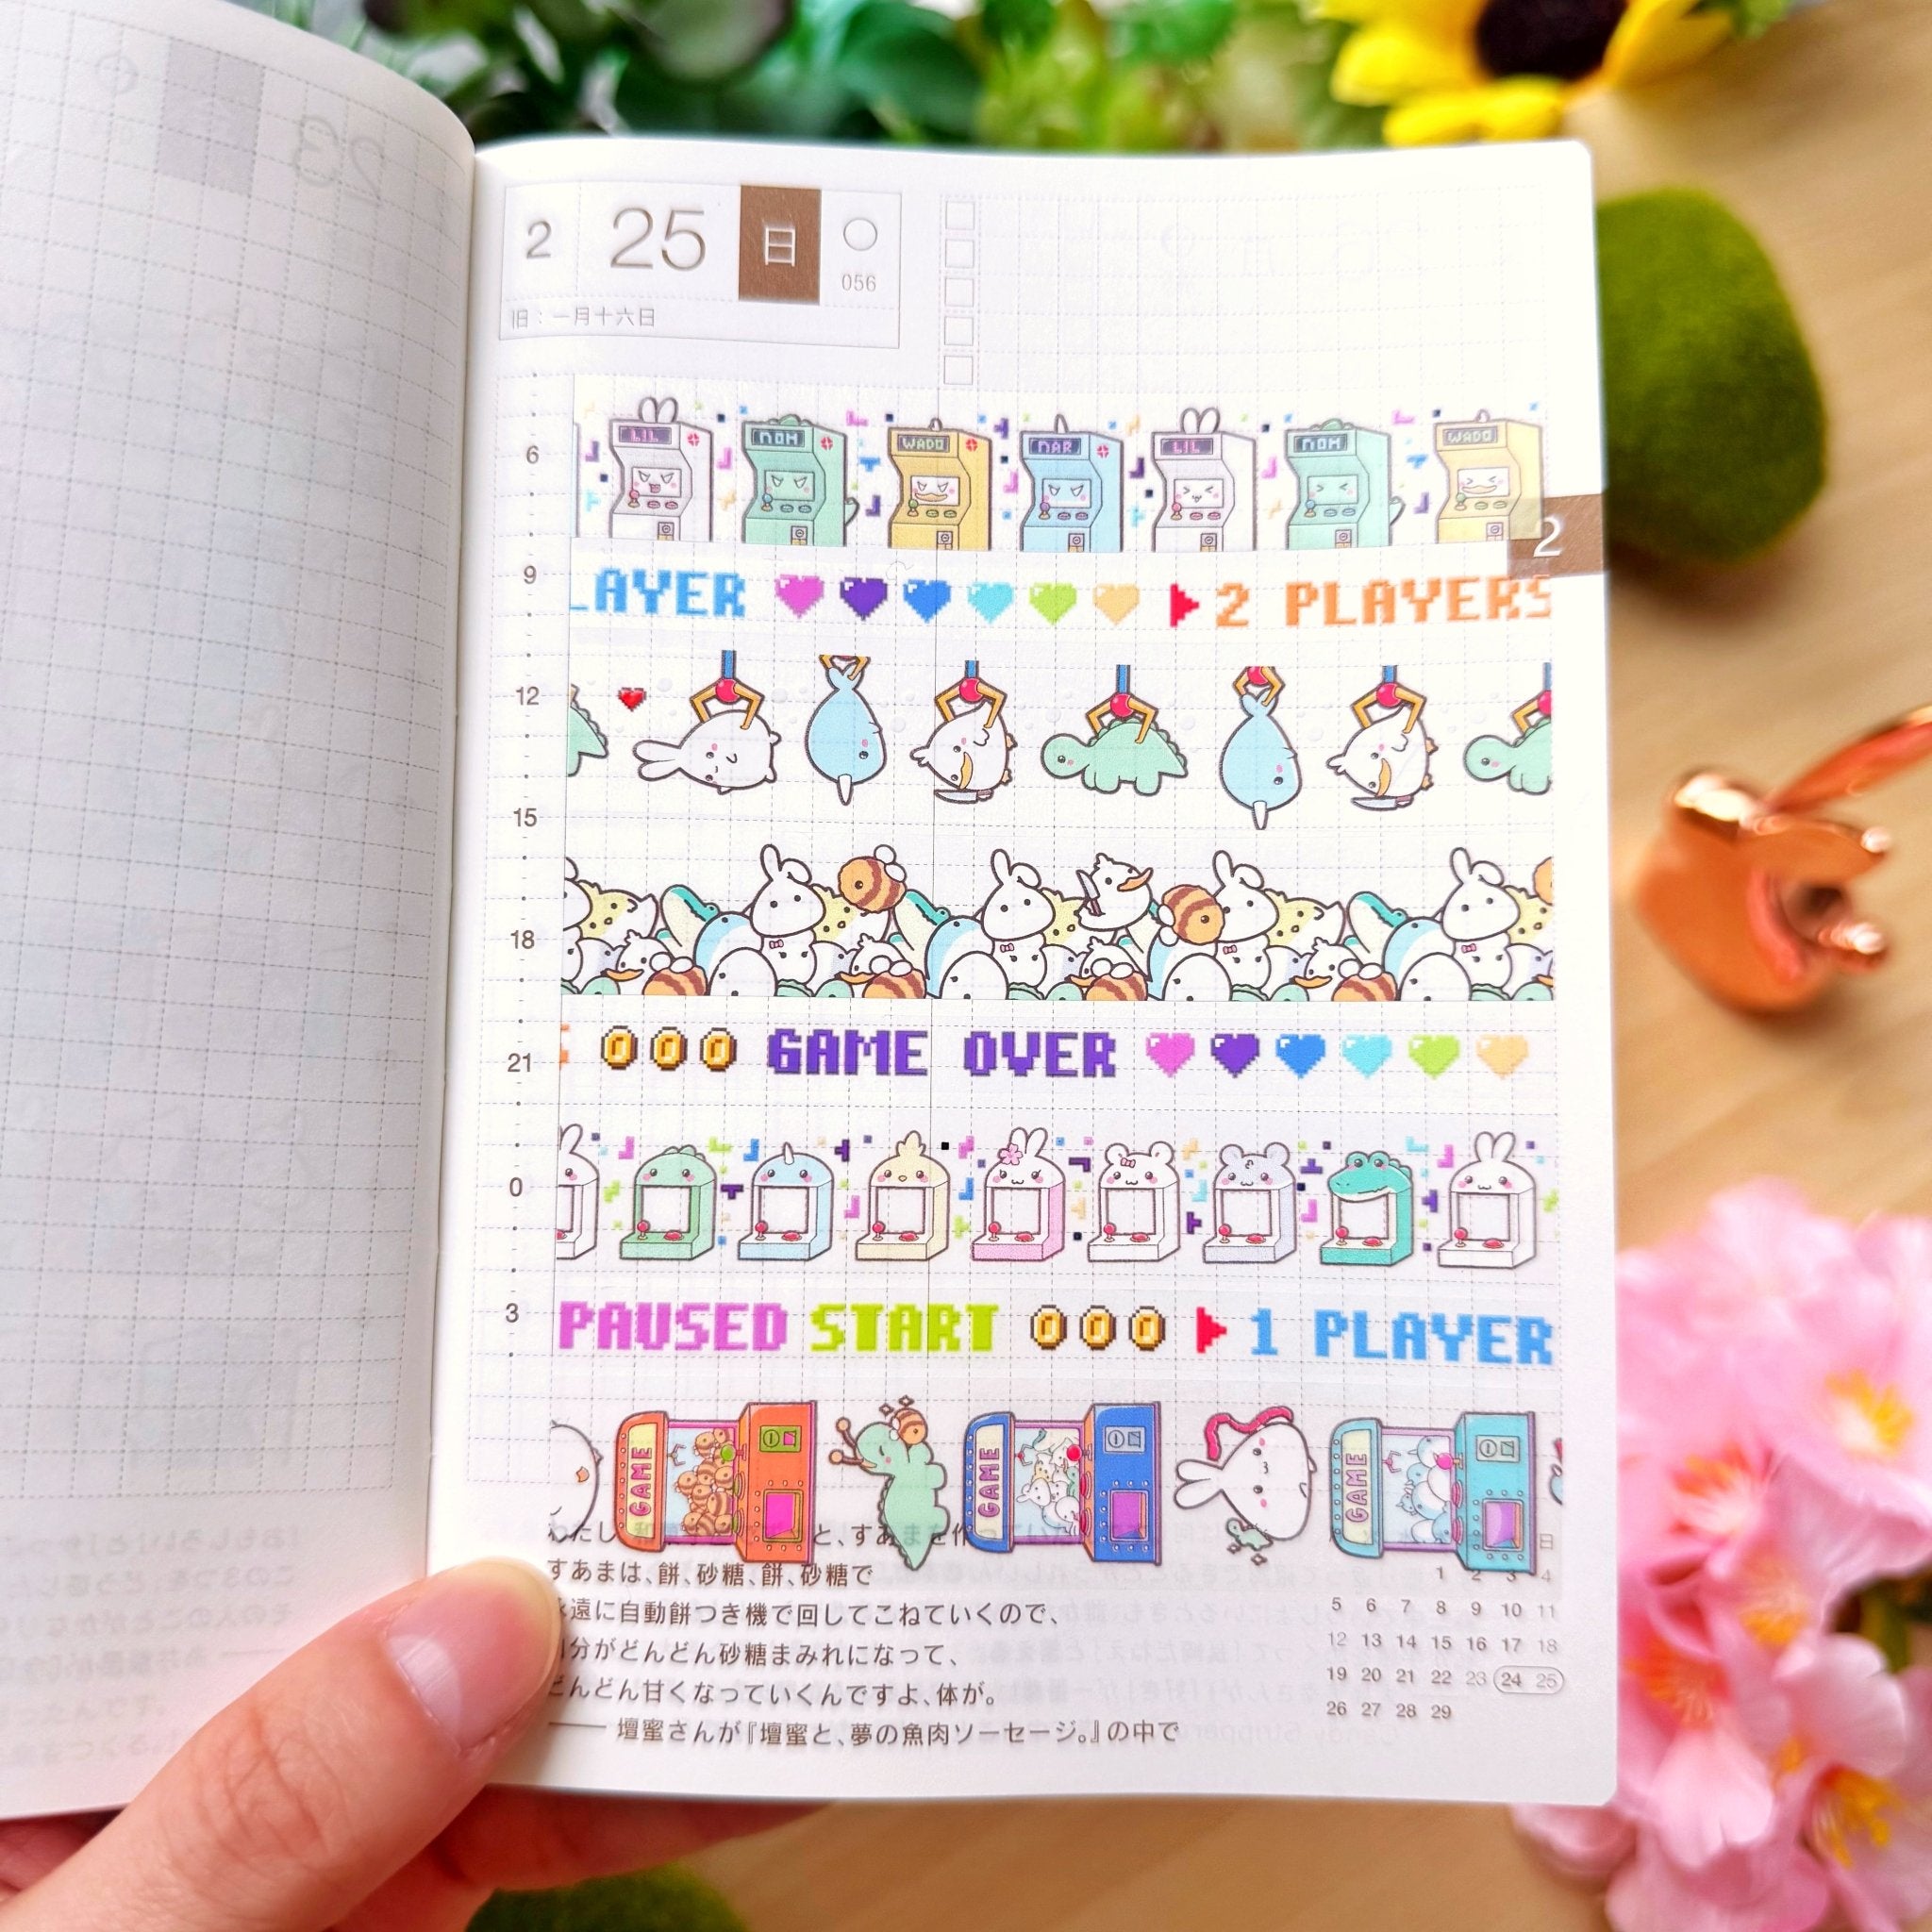 2 25 日
056
旧：一月十六日
LIL NOM WADO NAR LIL NOM WADO
6
2
9
LAYER 2 PLAYERS
12
15
18
GAME OVER
21
0
3
PAUSED START 1 PLAYER
GAME GAME GAME
わたし と、すあまを作
すあまは、餅、砂糖、餅、砂糖で
永遠に自動餅つき機で回してこねていくので、
自分がどんどん砂糖まみれになって、
どんどん甘くなっていくんですよ、体が。
── 壇蜜さんが『壇蜜と、夢の魚肉ソーセージ。』の中で
日
1 2 3 4
5 6 7 8 9 10 11
12 13 14 15 16 17 18
19 20 21 22 23 24 25
26 27 28 29